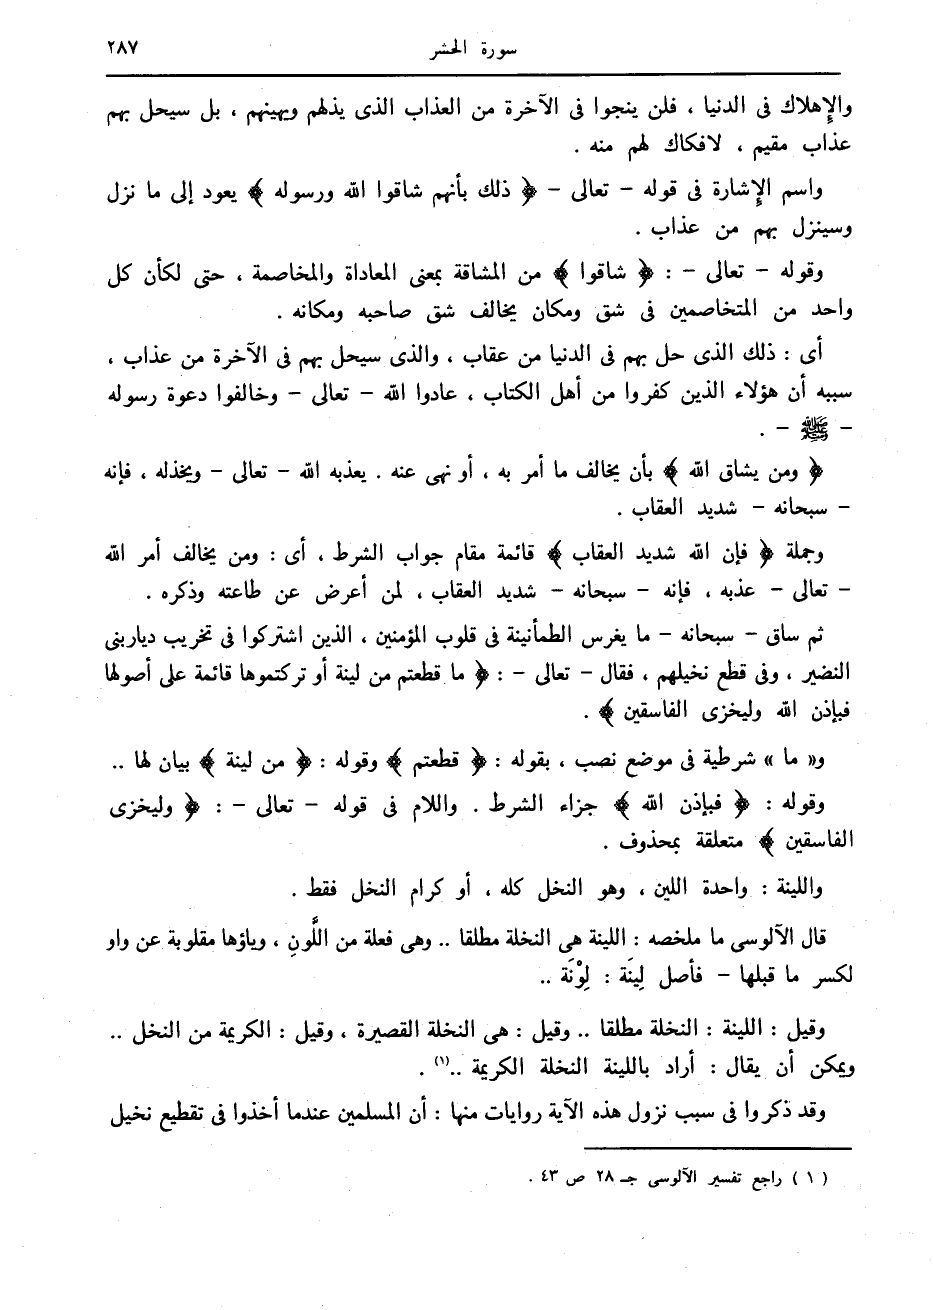 سورة الحشر ٢٨٧
والإهلاك فى الدنيا ، فلن ينجوا فى الآخرة من العذاب الذى يذلهم ويهينهم ، بل سيحل بهم
عذاب مقيم ، لافكاك لهم منه .
واسم الإشارة فى قوله - تعالى - ﴿ ذلك بأنهم شاقوا الله ورسوله ﴾ يعود إلى ما نزل
وسينزل بهم من عذاب .
وقوله - تعالى - : ﴿ شاقوا ﴾ من المشاقة بمعنى المعاداة والمخاصمة ، حتى لكأن كل
واحد من المتخاصمين فى شق ومكان يخالف شق صاحبه ومكانه .
أى : ذلك الذى حل بهم فى الدنيا من عقاب ، والذى سيحل بهم فى الآخرة من عذاب ،
سببه أن هؤلاء الذين كفروا من أهل الكتاب ، عادوا الله - تعالى - وخالفوا دعوة رسوله
- ﷺ - .
﴿ ومن يشاق الله ﴾ بأن يخالف ما أمر به ، أو نهى عنه . يعذبه الله - تعالى - ويخذله ، فإنه
- سبحانه - شديد العقاب .
وجملة ﴿ فإن الله شديد العقاب ﴾ قائمة مقام جواب الشرط ، أى : ومن يخالف أمر الله
- تعالى - عذبه ، فإنه - سبحانه - شديد العقاب ، لمن أعرض عن طاعته وذكره .
ثم ساق - سبحانه - ما يغرس الطمأنينة فى قلوب المؤمنين ، الذين اشتركوا فى تخريب ديار بنى
النضير ، وفى قطع نخيلهم ، فقال - تعالى - : ﴿ ما قطعتم من لينة أو تركتموها قائمة على أصولها
فبإذن الله وليخزى الفاسقين ﴾ .
و« ما » شرطية فى موضع نصب ، بقوله : ﴿ قطعتم ﴾ وقوله : ﴿ من لينة ﴾ بيان لها ..
وقوله : ﴿ فبإذن الله ﴾ جزاء الشرط . واللام فى قوله - تعالى - : ﴿ وليخزى
الفاسقين ﴾ متعلقة بمحذوف .
واللينة : واحدة اللين ، وهو النخل كله ، أو كرام النخل فقط .
قال الآلوسى ما ملخصه : اللينة هى النخلة مطلقا .. وهى فعلة من اللَّونِ ، وياؤها مقلوبة عن واو
لكسر ما قبلها - فأصل لِينَة : لِوْنَة ..
وقيل : اللينة : النخلة مطلقا .. وقيل : هى النخلة القصيرة ، وقيل : الكريمة من النخل ..
ويمكن أن يقال : أراد باللينة النخلة الكريمة ..(١) .
وقد ذكروا فى سبب نزول هذه الآية روايات منها : أن المسلمين عندما أخذوا فى تقطيع نخيل
( ١ ) راجع تفسير الآلوسى جـ ٢٨ ص ٤٣ .